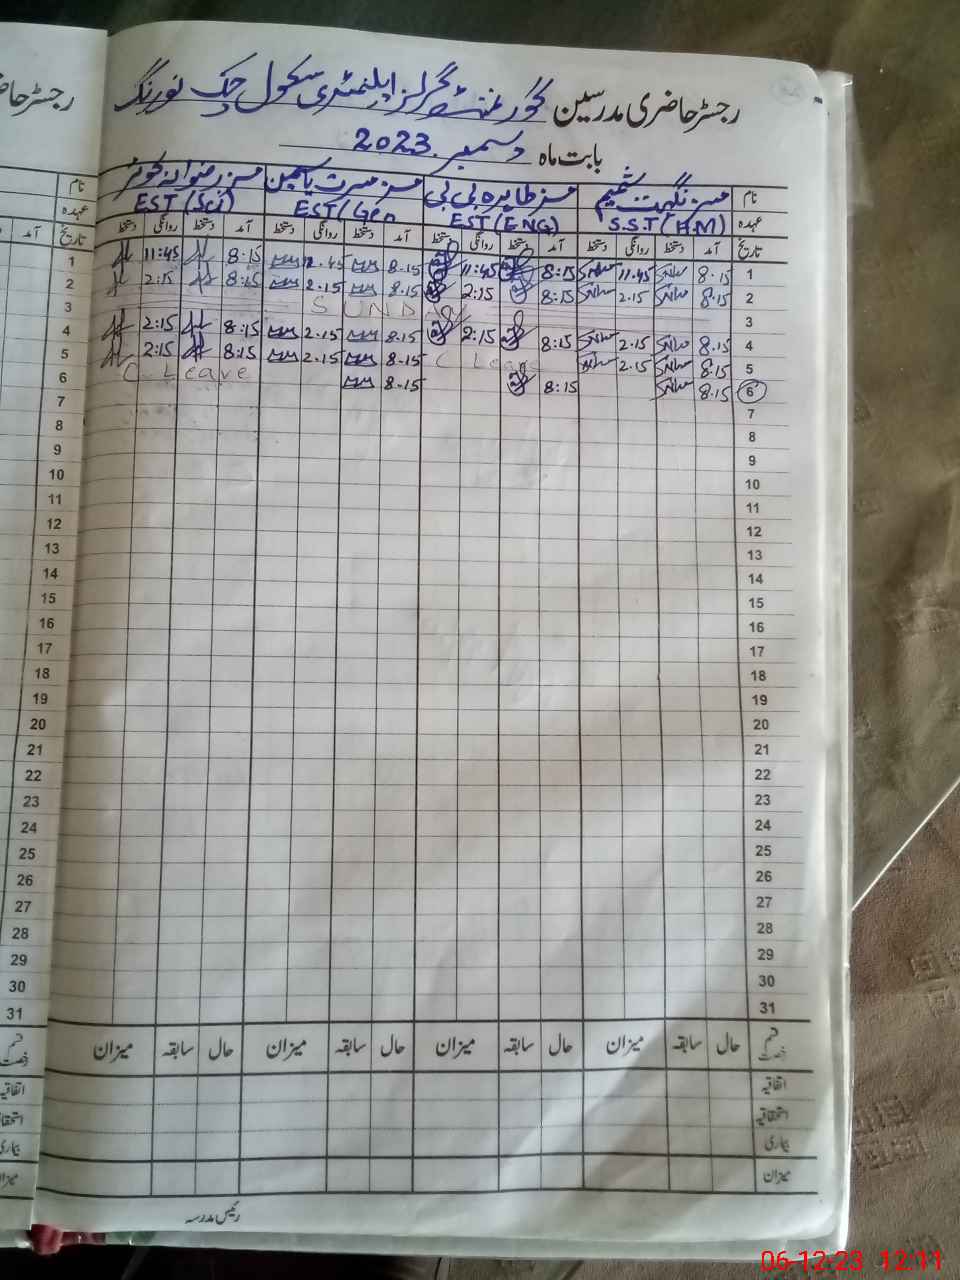 رجسٹر حاضری مدرسین گورنمنٹ گرلز ایلیمنٹری سکول چک نورنگ
بابت ماہ دسمبر 2023
نام مسز نگہت شمیم مسز طاہرہ بی بی مسز مسرت یاسمین مسز رضوانہ کوثر
عہدہ S.S.T (H.M) EST (ENG) EST (Gen EST (Sci)
تاریخ آمد دستخط روانگی دستخط آمد دستخط روانگی دستخط آمد دستخط روانگی دستخط آمد دستخط روانگی دستخط
1 8.15 11.45 8:15 11:45 8.15 12.45 8:15 11:45
2 8.15 2.15 8:15 2:15 8.15 2.15 8:15 2:15
3 SUNDAY
4 8.15 2.15 8:15 2:15 8.15 2.15 8:15 2:15
5 8.15 2.15 C Leave 8.15 2.15 8:15 2:15
6 8.15 8:15 8.15 C. Leave
7
8
9
10
11
12
13
14
15
16
17
18
19
20
21
22
23
24
25
26
27
28
29
30
31
قسم رخصت حال سابقہ میزان حال سابقہ میزان حال سابقہ میزان حال سابقہ میزان
اتفاقیہ
استحقاقیہ
بیماری
میزان
رئیس مدرسہ
06-12-23 12:11